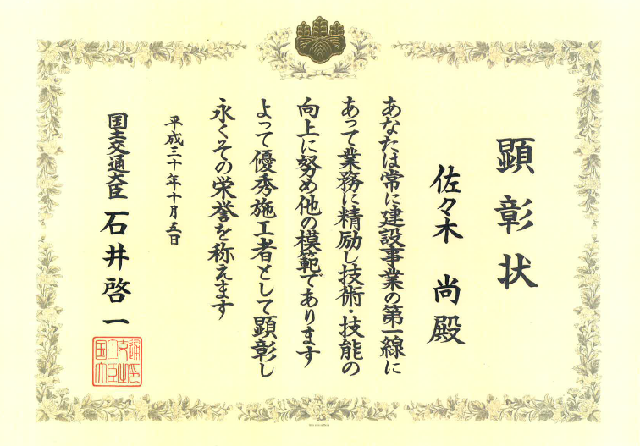 顕彰状
佐々木 尚殿
あなたは常に建設事業の第一線に
あって業務に精励し技術・技能の
向上に努め他の模範であります
よって優秀施工者として顕彰し
永くその栄誉を称えます
平成三十年十月五日
国土交通大臣 石井啓一